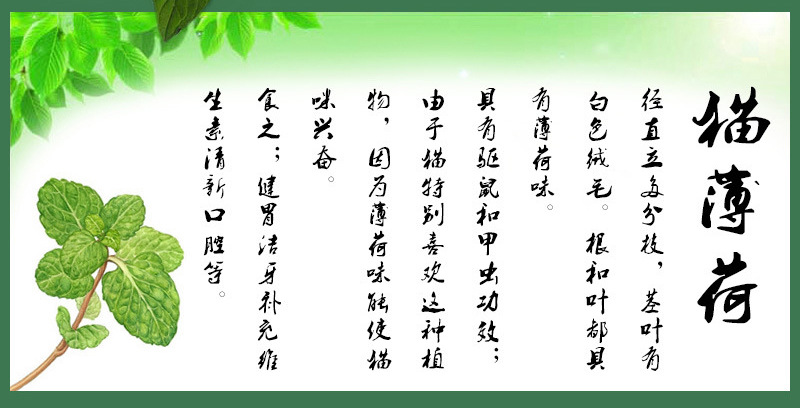 猫薄荷
径直立多分枝，茎叶有
白色绒毛。根和叶都具
有薄荷味。
具有驱鼠和甲虫功效；
由于猫特别喜欢这种植
物，因为薄荷味能使猫
咪兴奋。
食之；健胃洁牙补充维
生素清新口腔等。